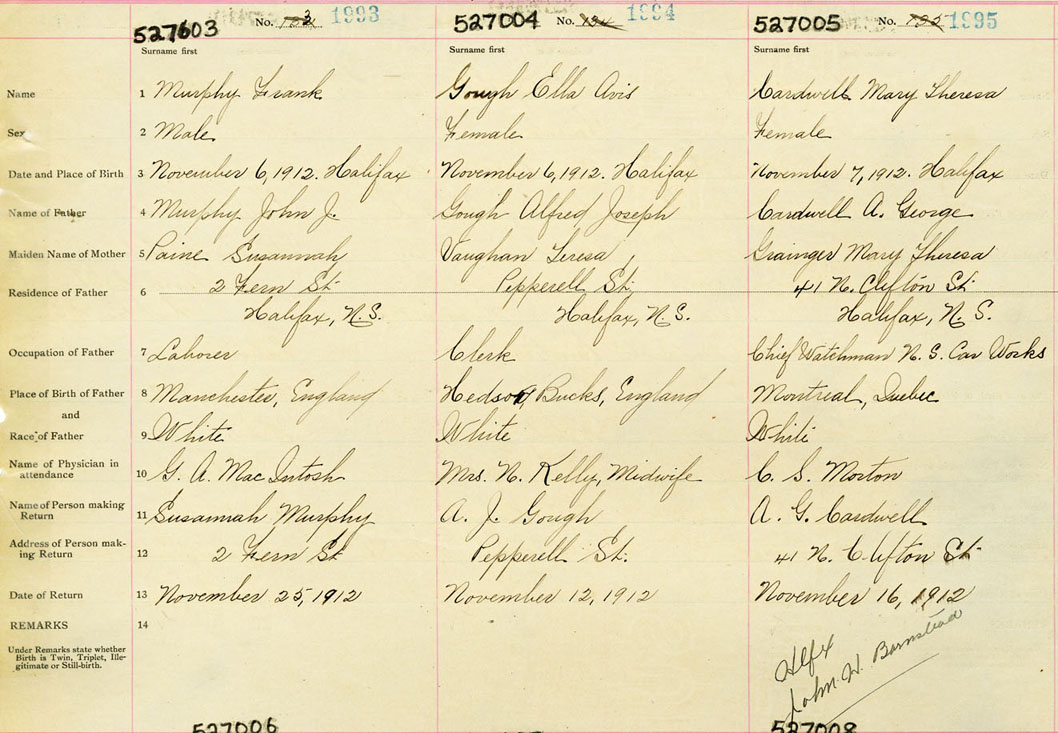 527603 No. 1993 527004 No. 1994 527005 No. 1995
Surname first Surname first Surname first
Name 1 Murphy Frank Gough Ella Avis Cardwell Mary Theresa
Sex 2 Male Female Female
Date and Place of Birth 3 November 6, 1912. Halifax November 6, 1912. Halifax November 7, 1912. Halifax
Name of Father 4 Murphy John J. Gough Alfred Joseph Cardwell A. George
Maiden Name of Mother 5 Paine Susannah Vaughan Teresa Grainger Mary Theresa
Residence of Father 6 2 Fern St. Pepperell St. 41 N. Clifton St.
Halifax, N.S. Halifax, N.S. Halifax, N.S.
Occupation of Father 7 Laborer Clerk Chief Watchman N.S. Car Works
Place of Birth of Father 8 Manchester, England Bucks, England Montreal, Quebec
and
Race of Father 9 White White White
Name of Physician in
attendance 10 G. A. MacIntosh Mrs. N. Kelly, Midwife C. S. Morton
Name of Person making
Return 11 Susannah Murphy A. J. Gough A. G. Cardwell
Address of Person mak-
ing Return 12 2 Fern St. Pepperell St. 41 N. Clifton St.
Date of Return 13 November 25, 1912 November 12, 1912 November 16, 1912
REMARKS 14
Under Remarks state whether
Birth is Twin, Triplet, Ille-
gitimate or Still-birth.
Hlfx
John H. Barnstead
527006 527008